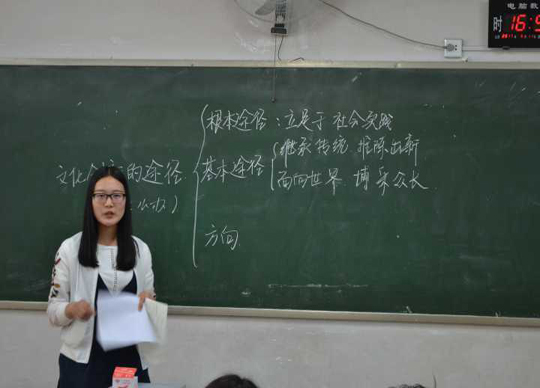 电脑数
时 16:5
根本途径：立足于社会实践
继承传统 推陈出新
文化创新的途径
基本途径
面向世界 博采众长
方向